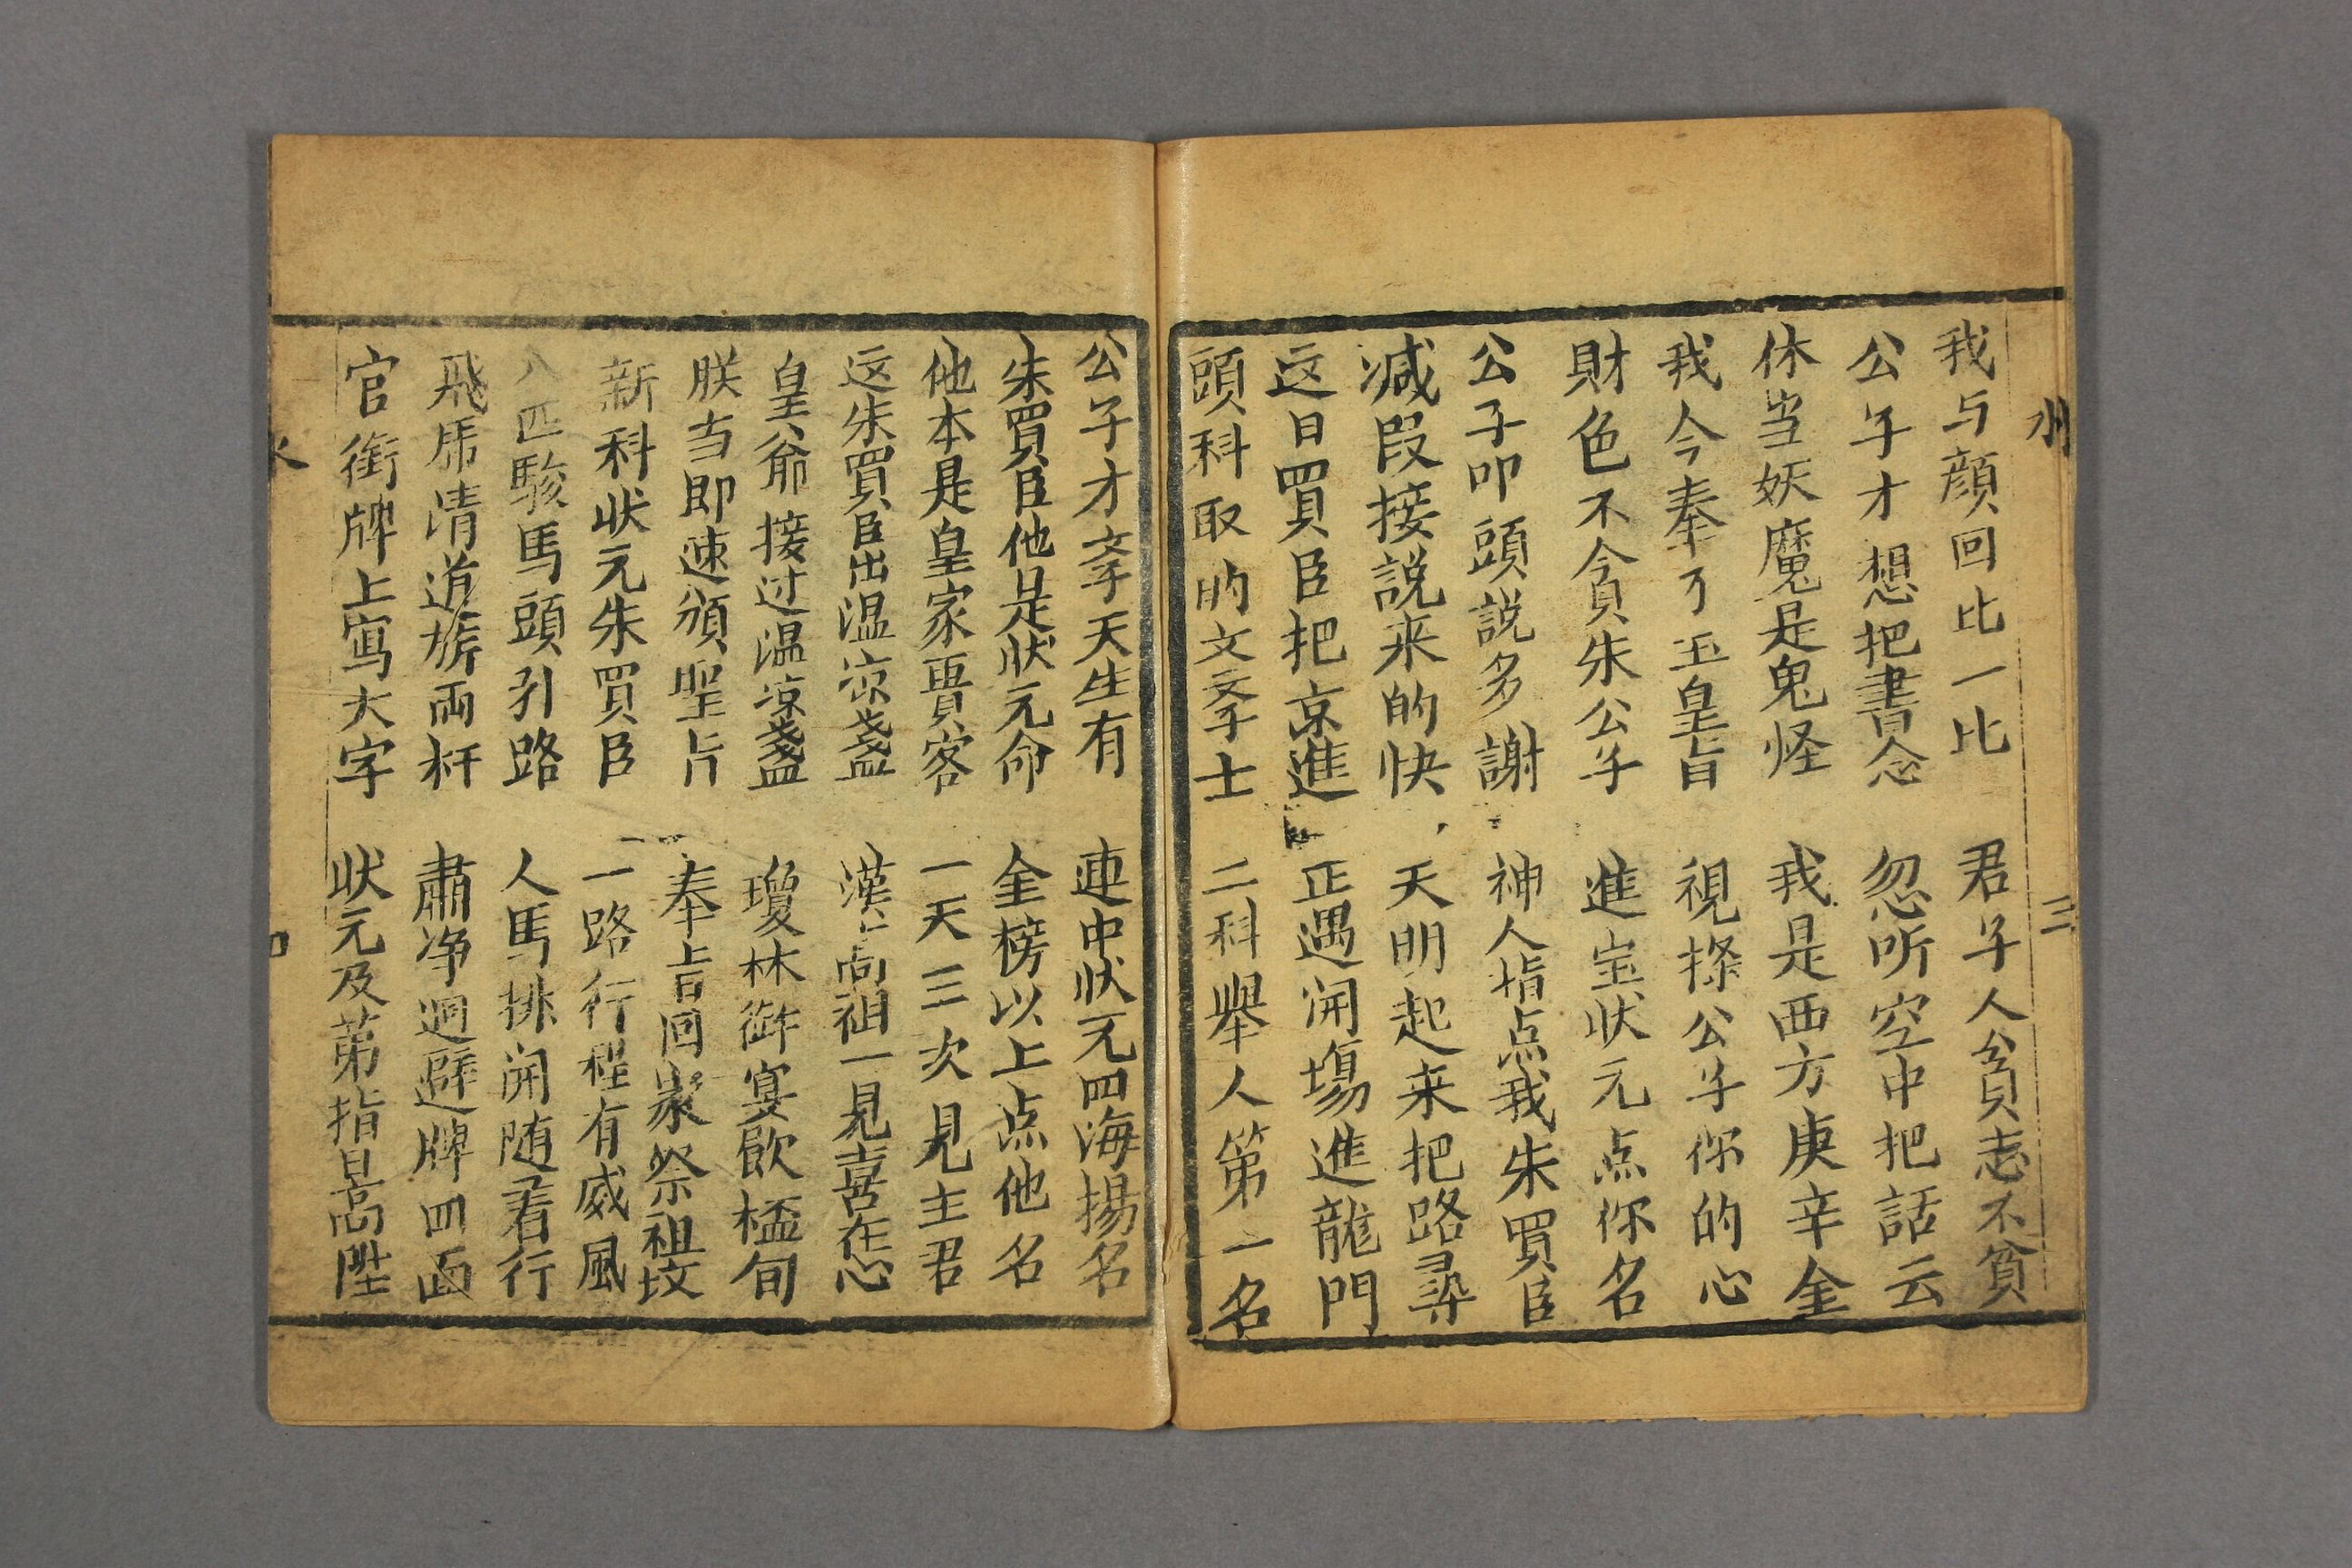 我与顔回比一比　君子人貧志不貧
公子才想把書念　忽听空中把話云
休当妖魔是鬼怪　我是西方庚辛金
我今奉了玉皇旨　視探公子你的心
財色不貪朱公子　進宝状元点你名
公子叩頭説多謝　神人指点我朱買臣
减叚接説来的快　天明起来把路尋
这日買臣把京進　正遇開場進龍門
頭科取的文孝士　二科舉人第一名
公子才孝天生有　連中状元四海揚名
朱買臣他是状元命　金榜以上点他名
他本是皇家賈客　一天三次見主君
这朱買臣出温凉盞　漢高祖一見喜在心
皇爺接过温凉盞　瓊林御宴飲樞旬
朕当即速頒聖旨　奉旨回家祭祖坟
新科状元朱買臣　一路行程有威風
八匹駿馬頭引路　人馬排開随着行
飛虎清道旂両杆　肅净迴避牌四面
官銜牌上寫大字　状元及苐指日高陞
水
三